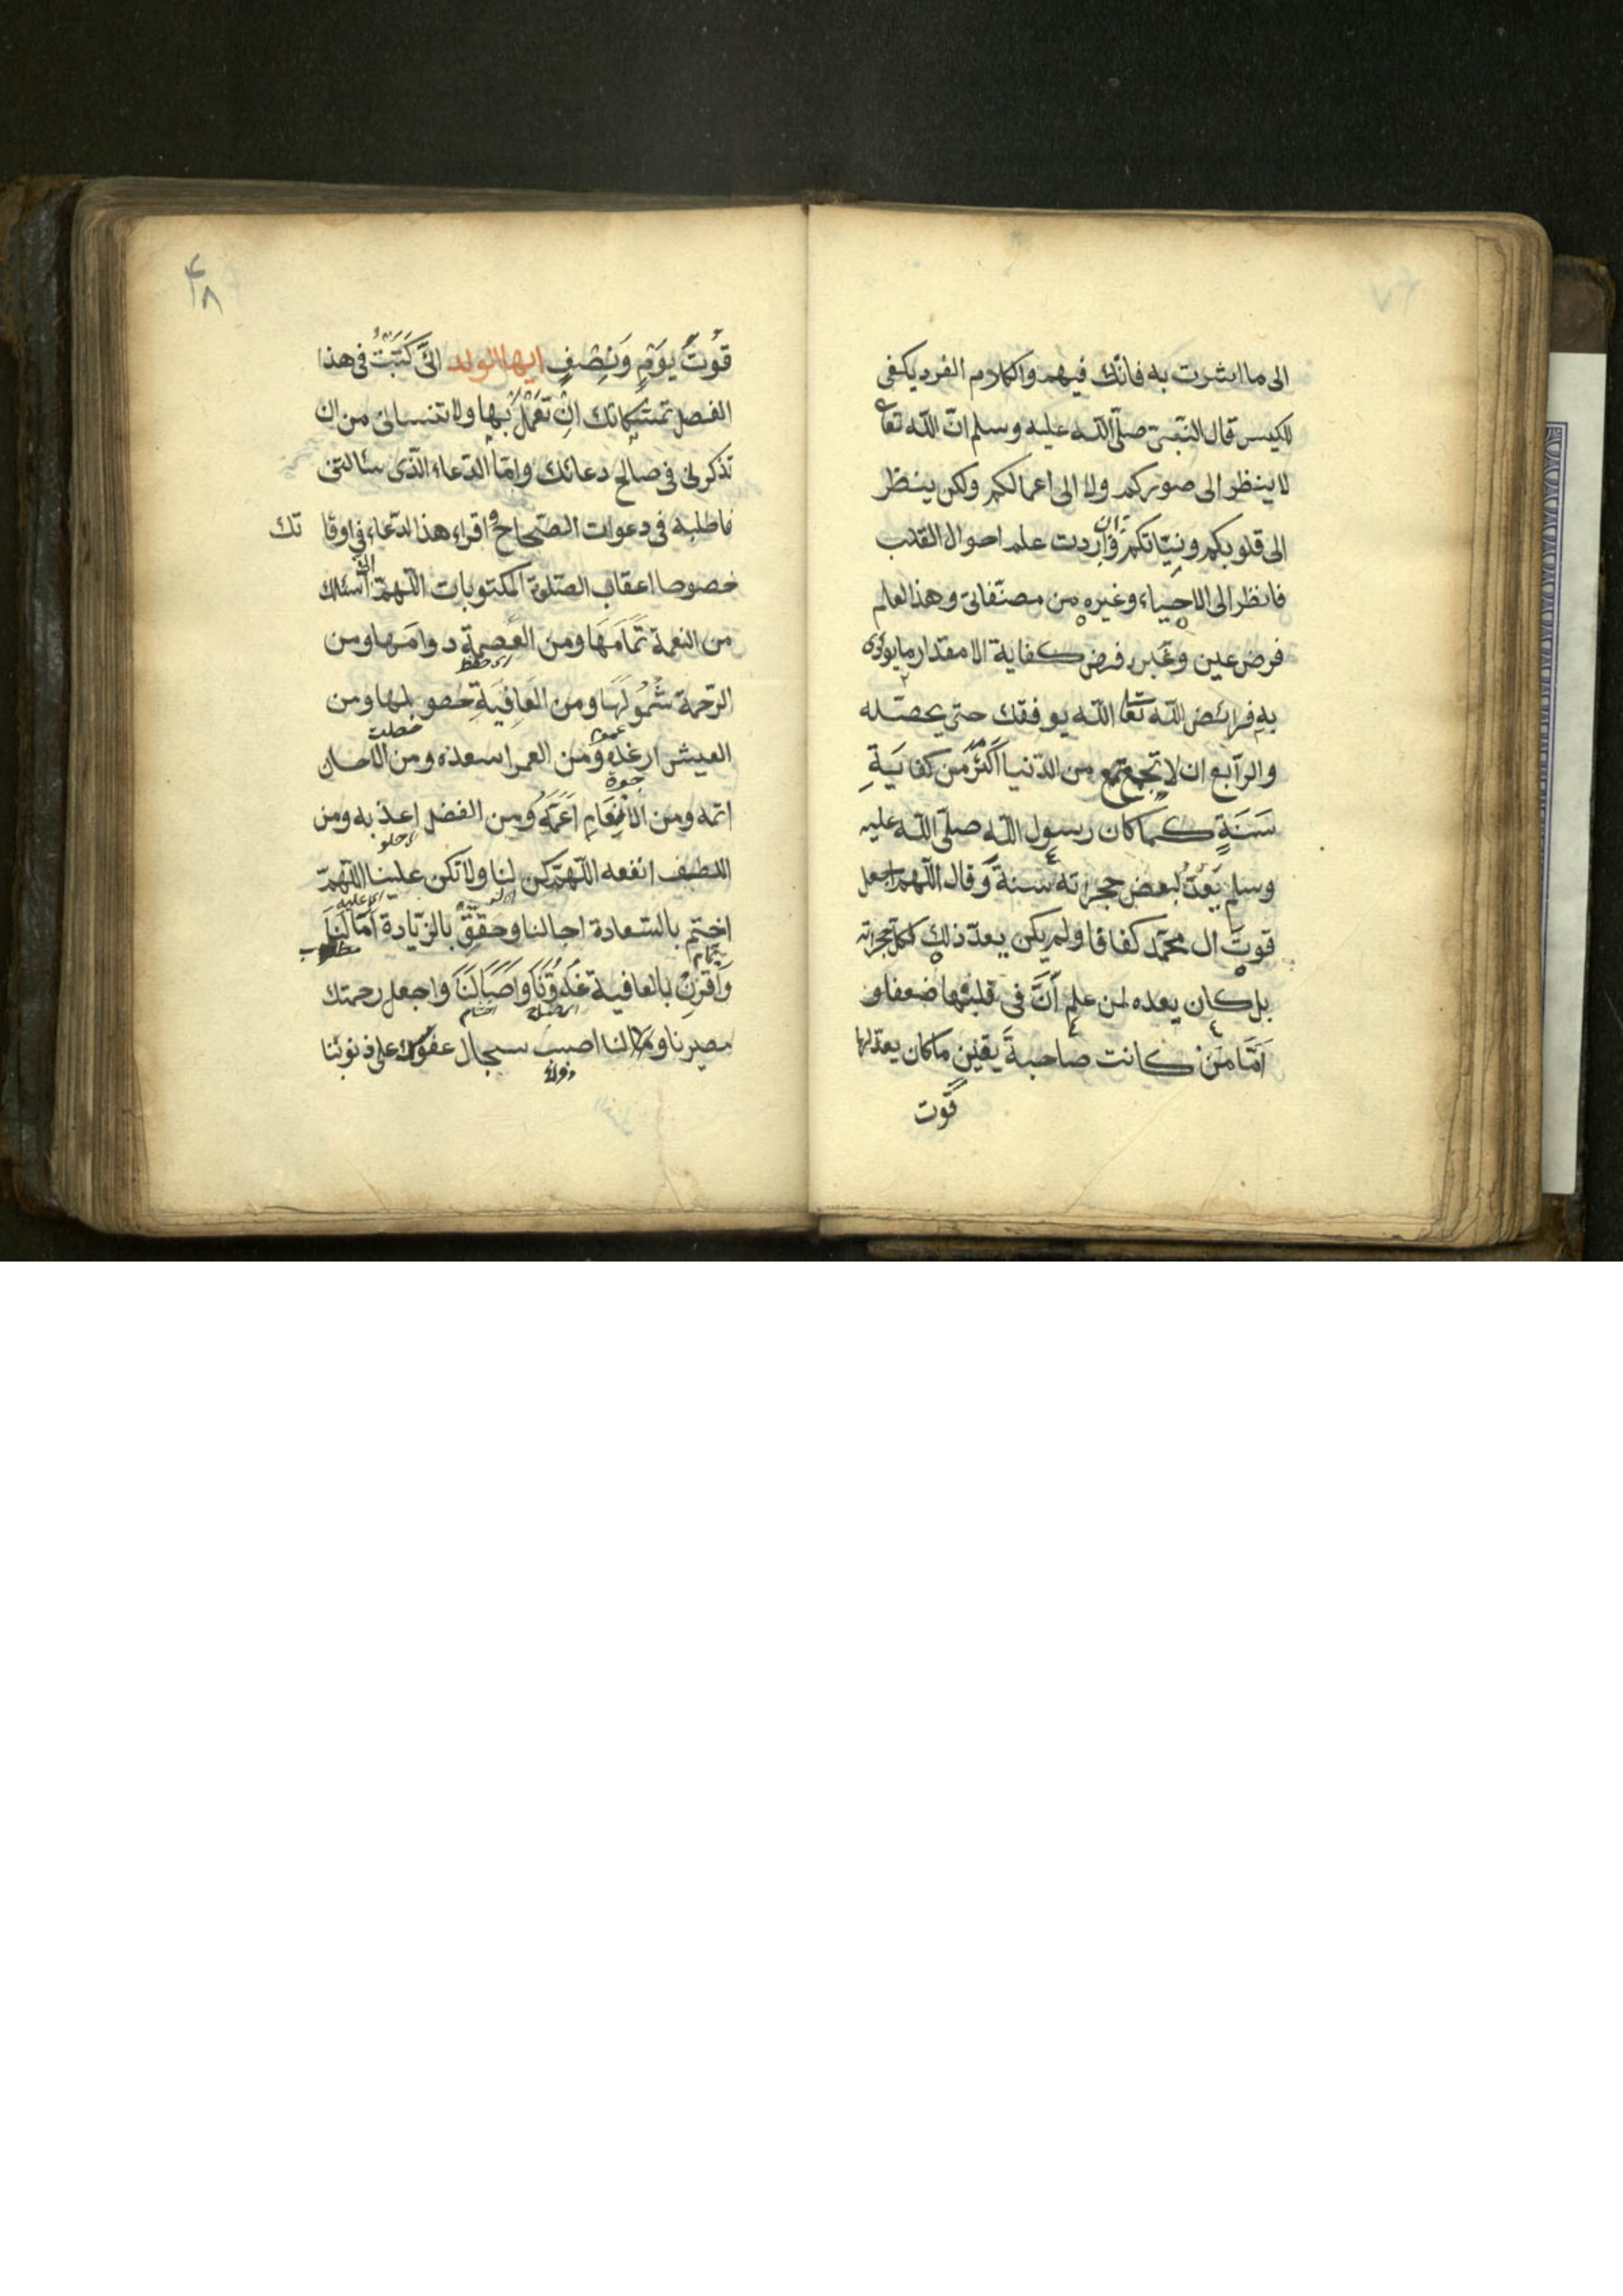 الى ما اشرت به فانّك فهيم والكلام الفرد يكفى
للكيس قال النّبى صلّى اللّه عليه وسلم انّ اللّه تعا
لا ينظر الى صوركم ولا الى اعمالكم ولكن ينظر
الى قلوبكم ونِيّاتكم وان اردت علم احوال القلب
فانظر الى الاحياء وغيره من مصنّفاتى وهذا العلم
فرض عين وغيره فرض كفاية الا مقدار ما يودّى
به فرائض اللّه تعا اللّه يوفقك حتى يحصّله
والرّابع ان لا تجمع من الدّنيا اَكْثَرَ مِن كفايَةِ
سَنَةٍ كما كان رسول اللّه صلّى اللّه عليه
وسلم يَعُدُّ لبعض حجراته سنة وقال اللّهم اجعل
قوتَ ال محمّد كفافا ولم يكن يعدّ ذلك لكل حجراته
بل كان يعده لمن علم أنَّ فى قلبها ضعفا و
اَمَّا مَنْ كانت صاحبةَ يقينٍ ما كان يعدّ لها
قوت
٤٨
قُوتَ يَوْمٍ وَنِصْفٍ ايها الولد انّى كَتَبْتُ فى هذا
الفصل ملتمساتك انْ تَعْمَلْ بها ولا تنسانى من ان
تذكرنى فى صالح دعائك وامّا الدّعاء الّذى سئالتنى
فاطلبه فى دعوات الصّحاح واقراء هذا الدّعاء فى اوقا تك
خصوصا اعقاب الصّلوة المكتوبات اللّهمّ انى اسئلك
من النعمة تَمَامَهَا ومن العِصمةِ دوامَها ومن
اى حفظ
الرّحمة شُمُولَهَا ومن العَافِيَةِ حصولها ومن
العيش ارغده وَمن العمر اسعده ومن الاحسان
اتمه ومن الاِنْعَامِ اَعَمَّهُ ومن الفضل اعذبه ومن
اى حلو
اللطف انفعه اللّهمّ كن لنا ولا تكن علينا اللّهمّ
اختم بالسّعادة اجالنا وحقِّقْ بالزّيادة اَمَالَنَا
وَاقْرِنْ بالعافية غُدُوَّنَا وَاَصَالَنَا واجعل رحمتك
مصيرنا ومَالنا اصبب سجال عفوك على ذنوبنا